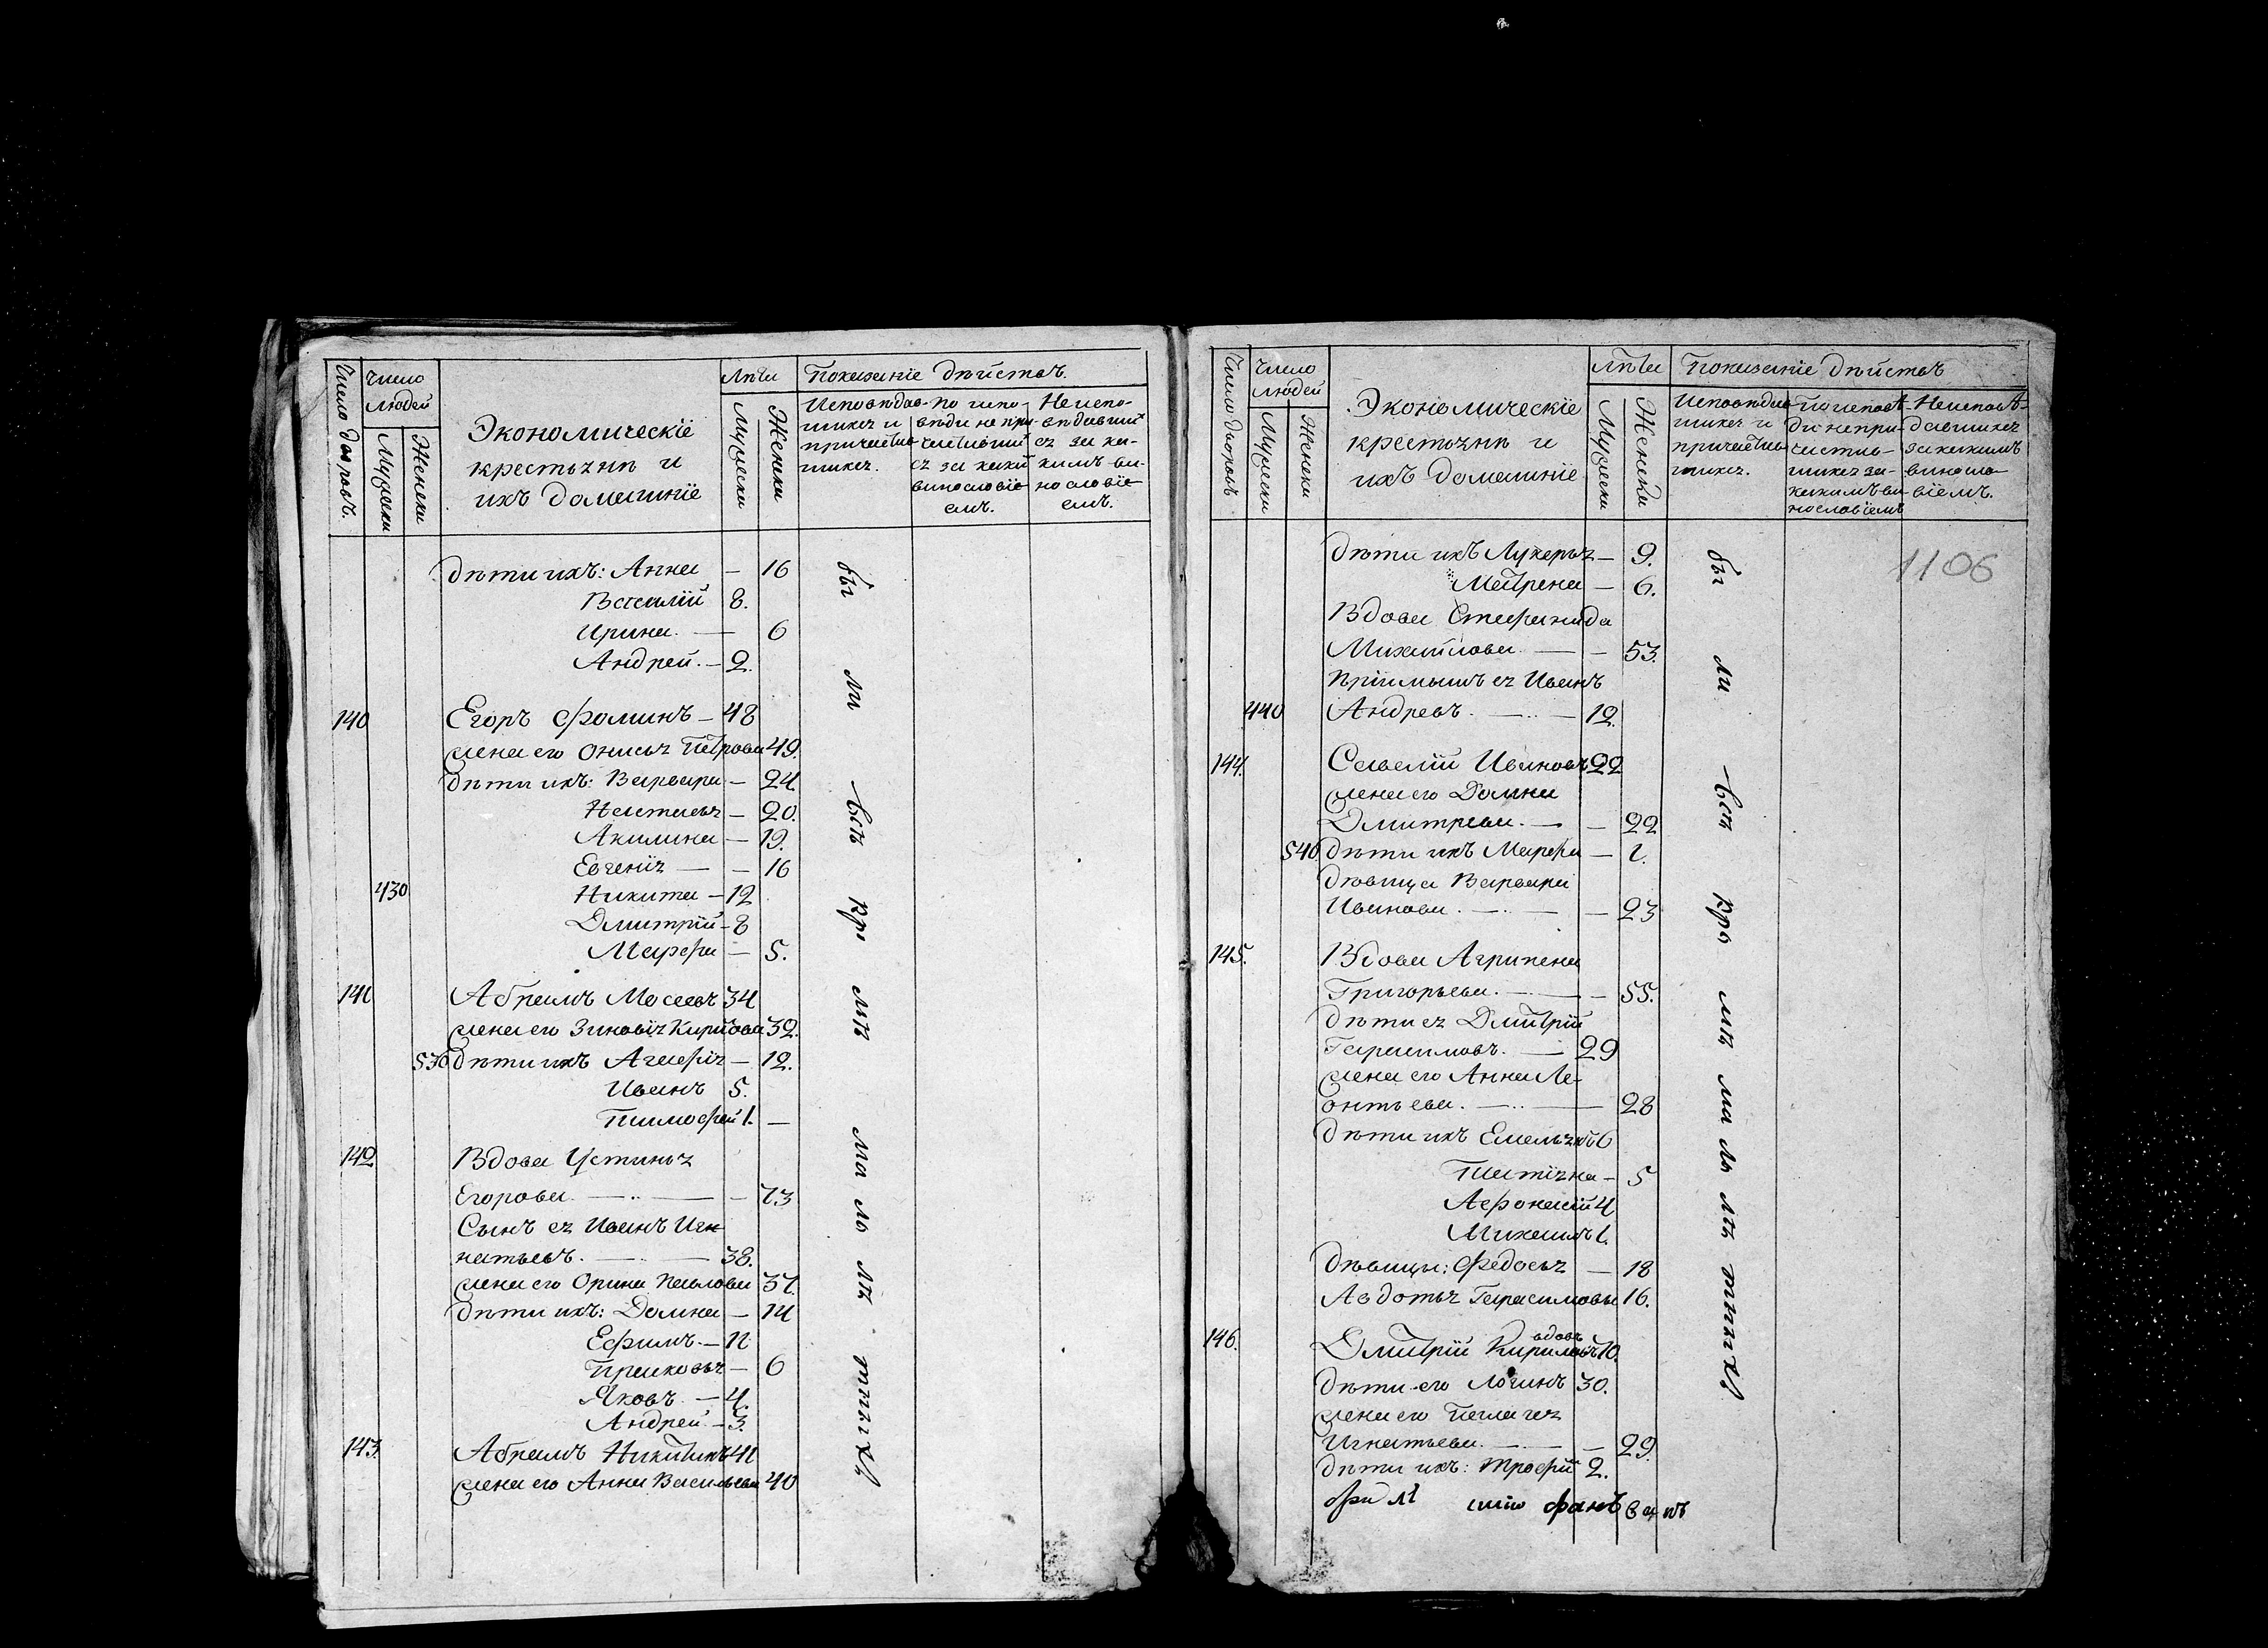 Число дворовъ.
Число
людей
Мужески
Женски
Экономическіе
крестьяне и
ихъ домашніе
Лѣта
Мужески
Женски
Показаніе дѣйства.
Исповѣдав-
шихся и
причастив-
шихся.
По испо-
вѣди не при-
частивших
ся за каким
винословіе-
емъ.
Не испо-
вѣдавших
ся за ка-
кимъ ви-
нословіе-
емъ.
дѣти ихъ: Анна — 16
Василій 8.
Ирина. — 6
Андрей. — 2.
140 Егоръ Фоминъ — 48
жена его Онисья Петрова 49.
дѣти ихъ: Варвара — 24
Настасья — 20.
Акилина — 19.
Евгенія — — 16
430 Никита — 12
Дмитрій — 8
Марфа — 5.
141 Абрамъ Мосеевъ 34
жена его Зиновія Кирилова 32.
530 дѣти ихъ Агафія — 12.
Иванъ 5.
Тимофей 1. —
142 Вдова Устинья
Егорова. — — 73
Сынъ ея Иванъ Иг-
натьевъ. — 38.
жена его Орина Павлова 37.
дѣти ихъ: Домна — 14
Ефимъ. — 11
Прасковья — 6
Яковъ. — 4.
Андрей — 3.
143. Абрамъ Никитинъ 41
жена его Анна Васильева 40
бы
ли
всѣ
кро
мѣ
ма
ло
лѣ
тныхъ
Число дворовъ
Число
людей
Мужески
Женски
Экономическіе
крестьяне и
ихъ домашніе
Лѣта
Мужески
Женски
Показаніе дѣйства
Исповѣдав-
шихся и
причастив-
шихся.
По исповѣ-
ди не при-
частив-
шихся за-
какимъ ви-
нословіемъ
Не исповѣ-
давшихся
за какимъ
виносло-
віемъ.
1106
дѣти ихъ Лукерья — 9.
Матрена — 6.
Вдова Стефанида
Михайлова — — 53.
Пріимышъ ея Иванъ
440 Андреевъ. — 12.
144. Савелій Ивановъ 22
жена его Домна
Дмитрева. — — 22
540 дѣти ихъ Марфа — 1.
дѣвица Варвара
Иванова. — — 23
145. Вдова Агрипена
Григорьева. — — 55.
дѣти ея Дмитрій
Герасимовъ. — 29
жена его Анна Ле-
онтьева. — 28
дѣти ихъ Емельянъ 6
Татіяна — 5
Афонасій 4
Михаилъ 1.
дѣвицы: Федосья — 18
Авдотья Герасимовы 16.
вдовъ
146. Дмитрій Кириловъ 70.
дѣти его Логинъ 30.
жена его Пелагея
Игнатьева. — — 29.
дѣти ихъ: Трофій 2.
бы
ли
всѣ
кро
мѣ
ма
ло
лѣ
тныхъ